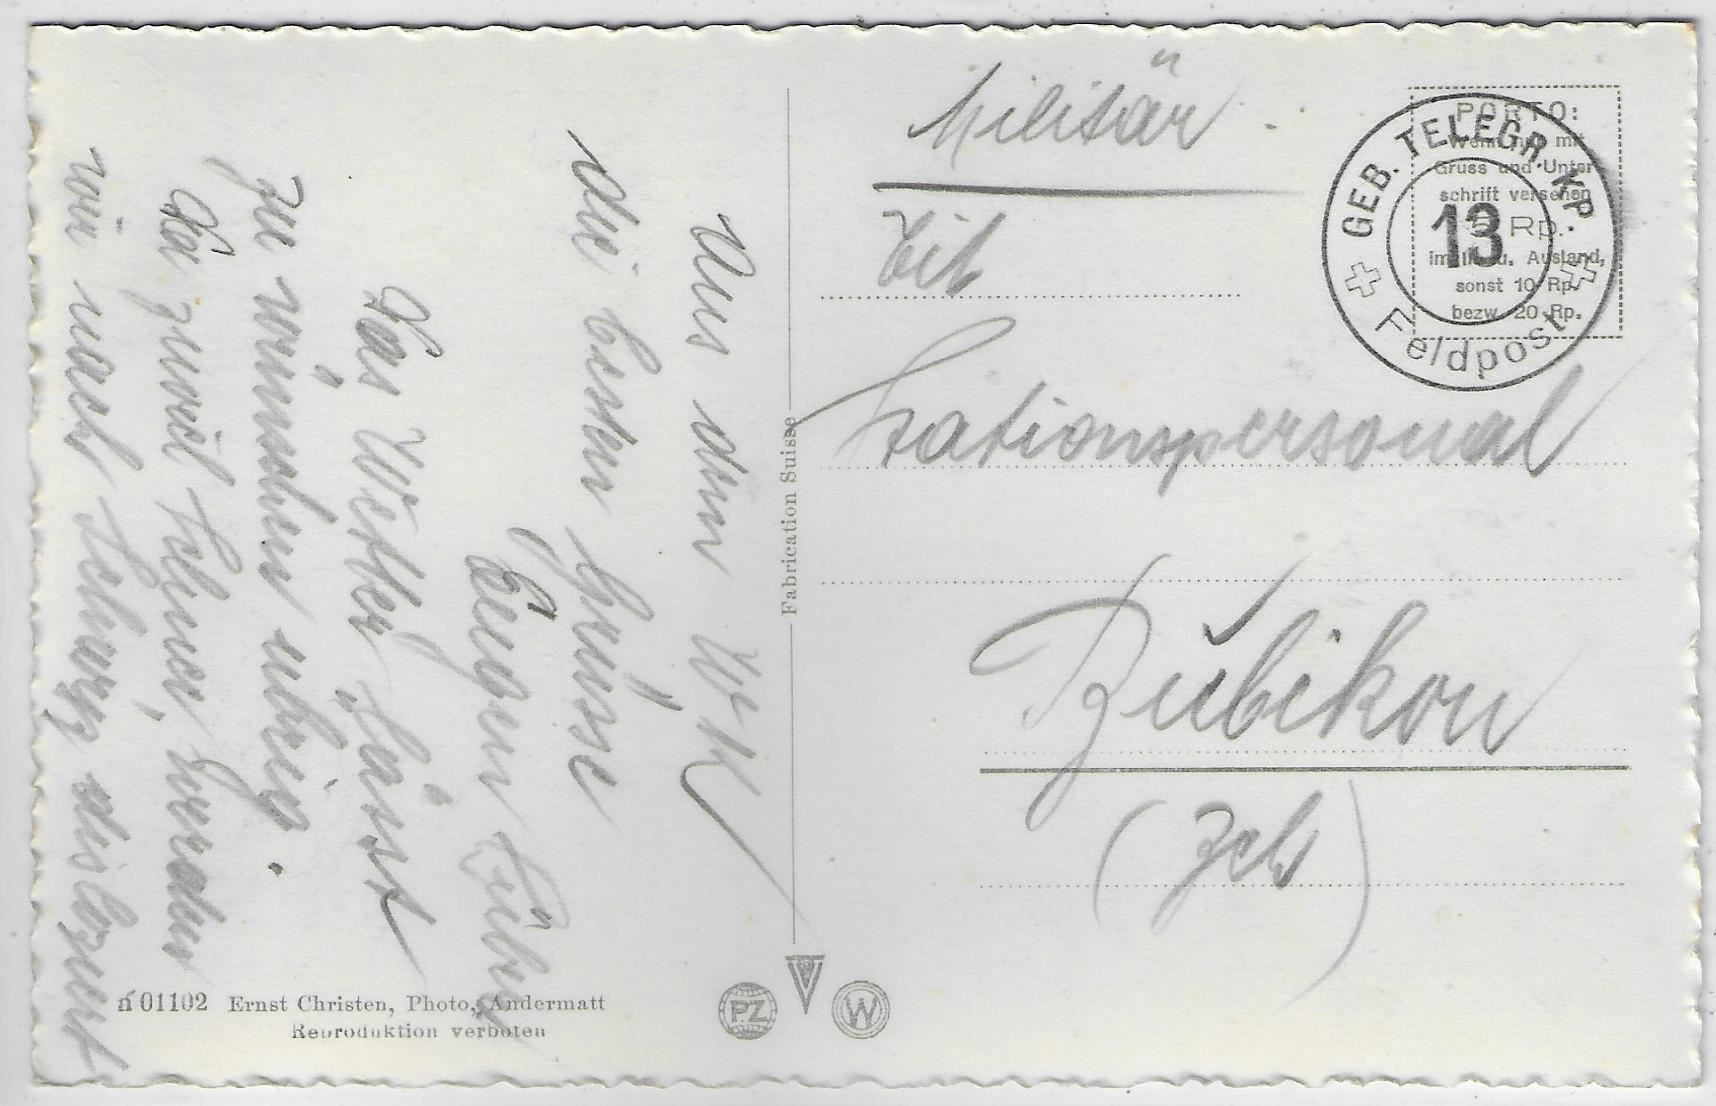 Aus dem WK
die besten Grüsse
Eugen
Das Wetter lässt
zu wünschen übrig.
Da zuviel Schnee, werden
wir nach Schwyz disloziert
01102 Ernst Christen, Photo, Andermatt
Reproduktion verboten
Fabrication Suisse
PZ
W
Militär.
Tit
Stationspersonal
Bubikon
(Zch)
PORTO:
Wenn nur mit
Gruss und Unter-
schrift versehen
Rp.
im In- u. Ausland,
sonst 10 Rp.
bezw. 20 Rp.
GEB. TELEGR. KP.
13
Feldpost